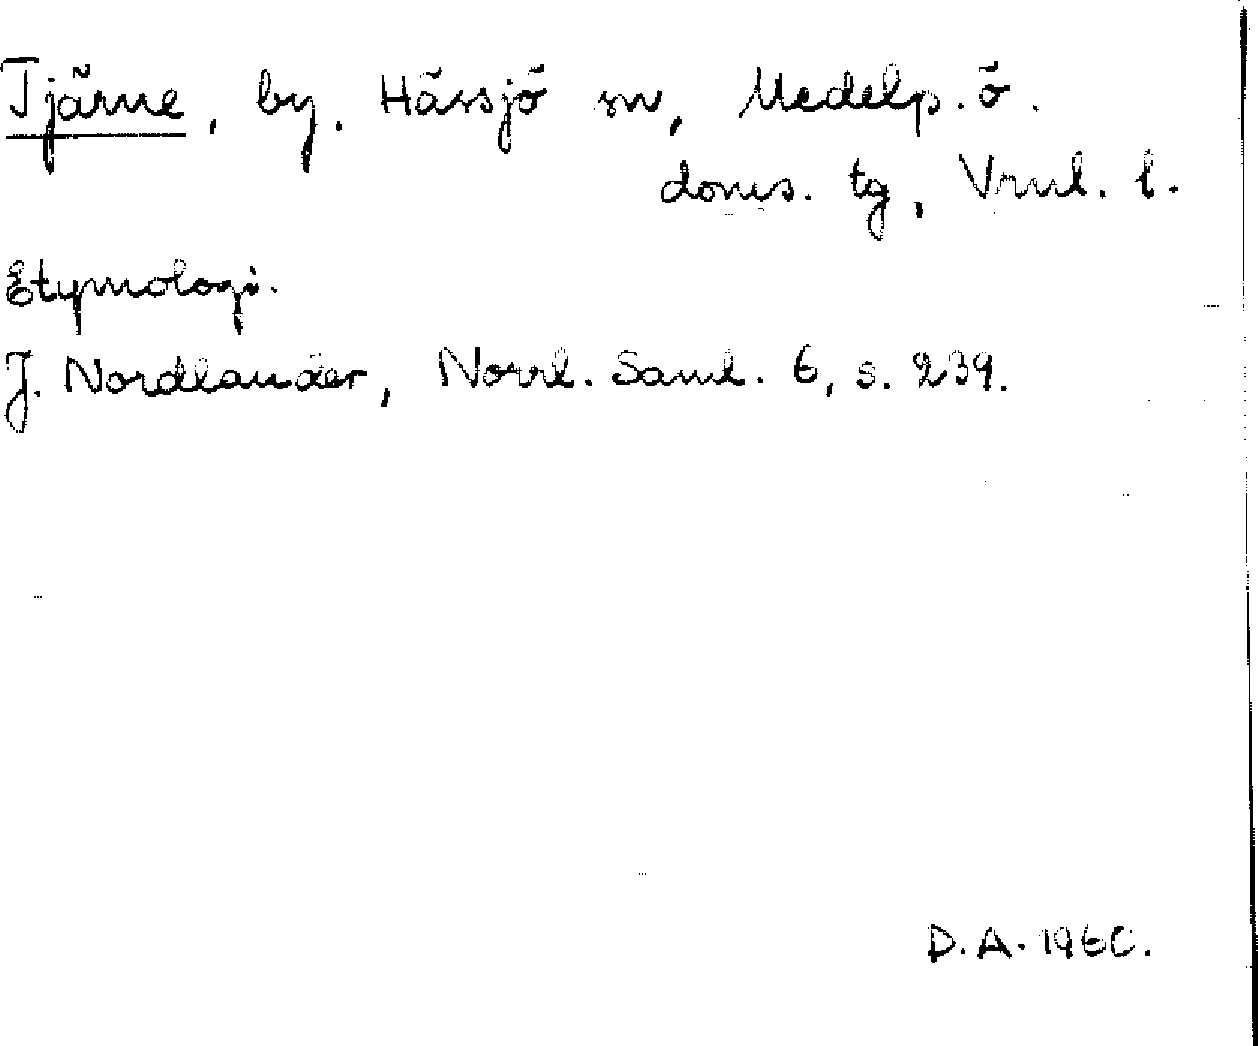 Tjärne, by. Hässjö sn, Medelp. ö.
doms. tg, Vrnl. l.
Etymologi.
J. Nordlander, Norrl. Saml. 6, s. 239.
D.A. 1960.